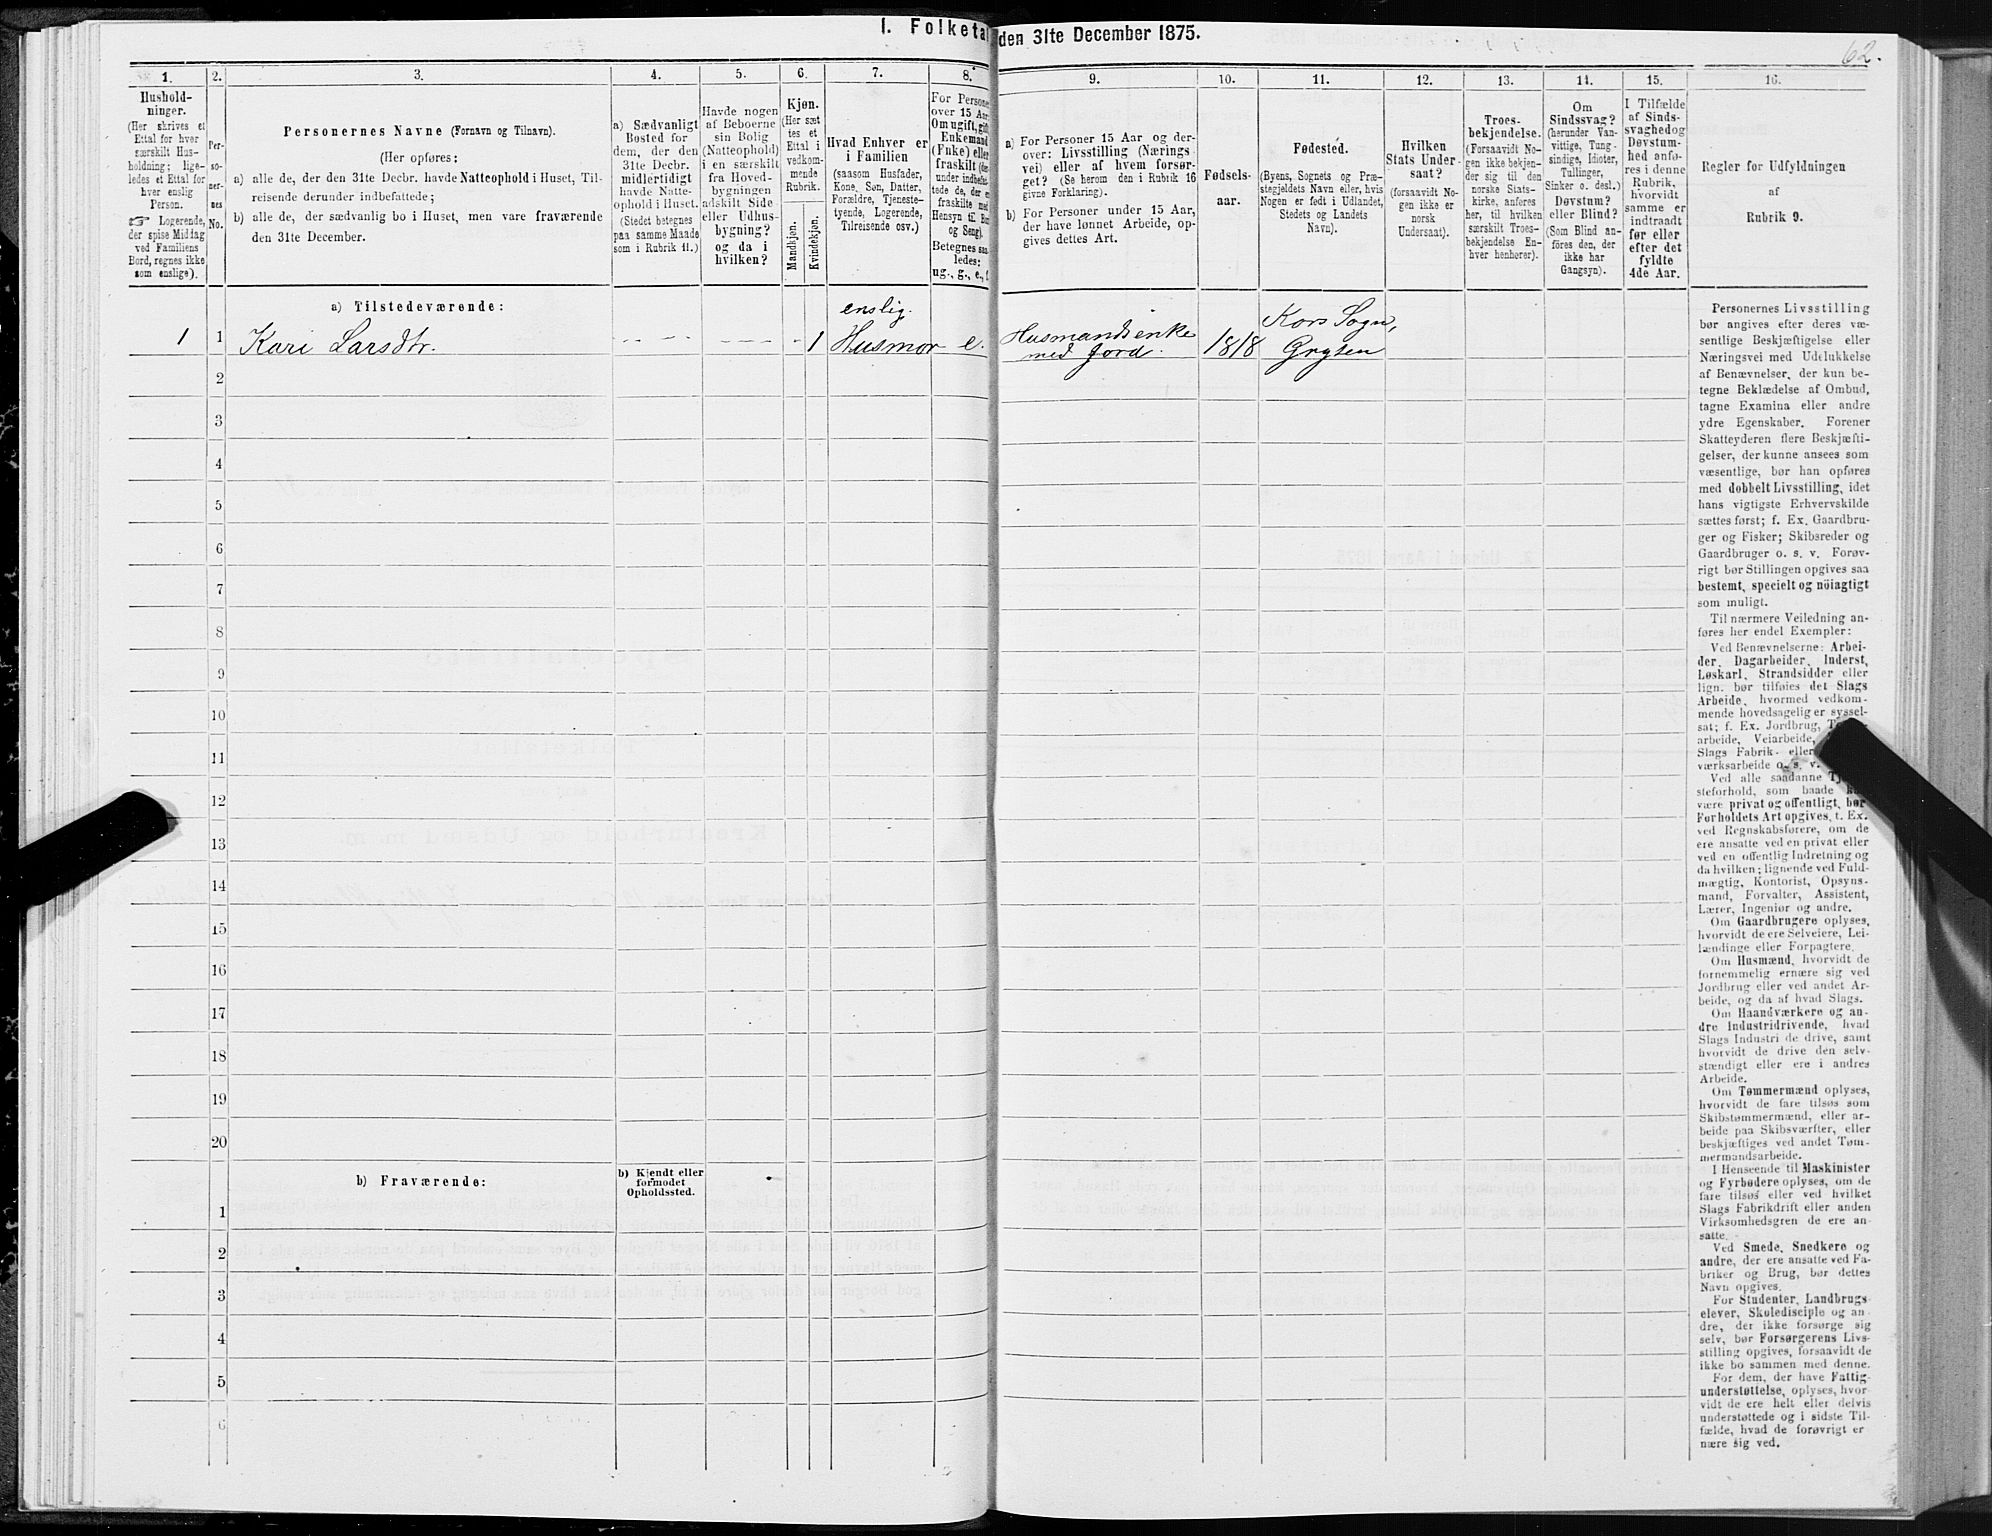 I. Folketal den 31te December 1875.
62.
1.
Hushold-
ninger.
(Her skrives et
Ettal for hver
særskilt Hus-
holdning; lige-
ledes et Ettal for
hver enslig
Person.
☞ Logerende,
der spise Middag
ved Familiens
Bord, regnes ikke
som enslige).
2.
Per-
so-
ner-
nes
No.
3.
Personernes Navne (Fornavn og Tilnavn).
(Her opføres:
a) alle de, der den 31te Decbr. havde Natteophold i Huset, Til-
reisende derunder indbefattede;
b) alle de, der sædvanlig bo i Huset, men vare fraværende
den 31te December.
4.
a) Sædvanligt
Bosted for
dem, der den
31te Decbr.
midlertidigt
havde Natte-
ophold i Huset.
(Stedet betegnes
paa samme Maade
som i Rubrik 11.)
5.
Havde nogen
af Beboerne
sin Bolig
(Natteophold)
i en særskilt
fra Hoved-
bygningen
adskilt Side
eller Udhus-
bygning?
og da i
hvilken?
6.
Kjøn.
(Her sæt
tes et
Ettal i
vedkom-
mende
Rubrik.
Mandkjøn.
Kvindekjøn.
7.
Hvad Enhver er
i Familien
(saasom Husfader,
Kone, Søn, Datter,
Forældre, Tjeneste-
tyende, Logerende,
Tilreisende osv.)
8.
For Persone
over 15 Aar
Om ugift, gift
Enkemand
(Enke) eller
fraskilt (der
under indbefat-
tede de, der er
fraskilte med
Hensyn til Bor
og Seng).
Betegnes saa-
ledes:
ug., g., e., f.
9.
a) For Personer 15 Aar og der-
over: Livsstilling (Nærings-
vei) eller af hvem forsør-
get? (Se herom den i Rubrik 16
givne Forklaring).
b) For Personer under 15 Aar,
der have lønnet Arbeide, op-
gives dettes Art.
10.
Fødsels-
aar.
11.
Fødested.
(Byens, Sognets og Præ-
stegjeldets Navn eller, hvis
Nogen er født i Udlandet,
Stedets og Landets
Navn).
12.
Hvilken
Stats Under-
saat?
(forsaavidt No-
gen ikke er
norsk
Undersaat).
13.
Troes-
bekjendelse.
(Forsaavidt No-
gen ikke bekjen-
der sig til den
norske Stats-
kirke, anføres
her, til hvilken
særskilt Troes-
bekjendelse En-
hver henhører).
14.
Om
Sindssvag?
(herunder Van-
vittige, Tung-
sindige, Idioter,
Tullinger,
Sinker o. desl.)
Døvstum?
eller Blind?
(Som Blind an-
føres den, der
ikke har
Gangsyn).
15.
I Tilfælde
af Sinds-
svaghed og
Døvstum-
hed anfø-
res i denne
Rubrik,
hvorvidt
samme er
indtraadt
før eller
efter det
fyldte
4de Aar.
16.
Regler for Udfyldningen
af
Rubrik 9.
a) Tilstedeværende:
enslig.
1 1 Kari Larsdtr. 1 Husmor e. Husmandsenke med Jord. 1818 Kors Sogn, Grytten
2
3
4
5
6
7
8
9
10
11
12
13
14
15
16
17
18
19
20
b) Fraværende:
b) Kjendt eller
formodet
Opholdssted.
1
2
3
4
5
6
Personernes Livsstilling
bør angives efter deres væ-
sentlige Beskjæftigelse eller
Næringsvei med Udelukkelse
af Benævnelser, der kun be-
tegne Beklædelse af Ombud,
tagne Examina eller andre
ydre Egenskaber. Forener
Skatteyderen flere Beskjæfti-
gelser, der kunne ansees som
væsentlige, bør han opføres
med dobbelt Livsstilling, idet
hans vigtigste Erhvervskilde
sættes først; f. Ex. Gaardbru-
ger og Fisker; Skibsreder og
Gaardbruger o. s. v. Forøv-
rigt bør Stillingen opgives saa
bestemt, specielt og nöiagtigt
som muligt.
Til nærmere Veiledning an-
føres her endel Exempler:
Ved Benævnelserne: Arbei-
der, Dagarbeider, Inderst,
Løskarl, Strandsidder eller
lign. bør tilføies det Slags
Arbeide, hvormed vedkom-
mende hovedsagelig er syssel-
sat; f. Ex. Jordbrug,
arbeide, Veiarbeide,
Slags Fabrik- eller
værksarbeide o. s. v.
Ved alle saadanne
steforhold, som baade
være privat og offentligt, bør
Forholdets Art opgives, t. Ex.
ved Regnskabsførere, om de
ere ansatte ved en privat eller
ved en offentlig Indretning og
da hvilken; lignende ved Fuld-
mægtig, Kontorist, Opsyns-
mand, Forvalter, Assistent,
Lærer, Ingeniør og andre.
Om Gaardbrugere oplyses,
hvorvidt de ere Selveiere, Lei-
lændinge eller Forpagtere.
Om Husmænd, hvorvidt de
fornemmelig ernære sig ved
Jordbrug eller ved andet Ar-
beide, og da af hvad Slags.
Om Haandværkere og an-
dre Industridrivende, hvad
Slags Industri de drive, samt
hvorvidt de drive den selv-
stændigt eller ere i andres
Arbeide.
Om Tømmermænd oplyses,
hvorvidt de fare tilsøs som
Skibstømmermænd, eller ar-
beide paa Skibsværfter, eller
beskjæftiges ved andet Tøm-
mermandsarbeide.
I Henseende til Maskinister
og Fyrbødere oplyses, om de
fare tilsøs eller ved hvilket
Slags Fabrikdrift eller anden
Virksomhedsgren de ere an-
satte.
Ved Smede, Snedkere og
andre, der ere ansatte ved Fa-
briker og Brug, bør dettes
Navn opgives.
For Studenter, Landbrugs-
elever, Skoledisciple og an-
dre, der ikke forsørge sig
selv, bør Forsørgerens Livs-
stilling opgives, forsaavidt de
ikke bo sammen med denne.
For dem, der have Fattig-
understøttelse, oplyses, hvor-
vidt de ere helt eller delvis
understøttede og i sidste Til-
fælde, hvad de forøvrigt er
nære sig ved.